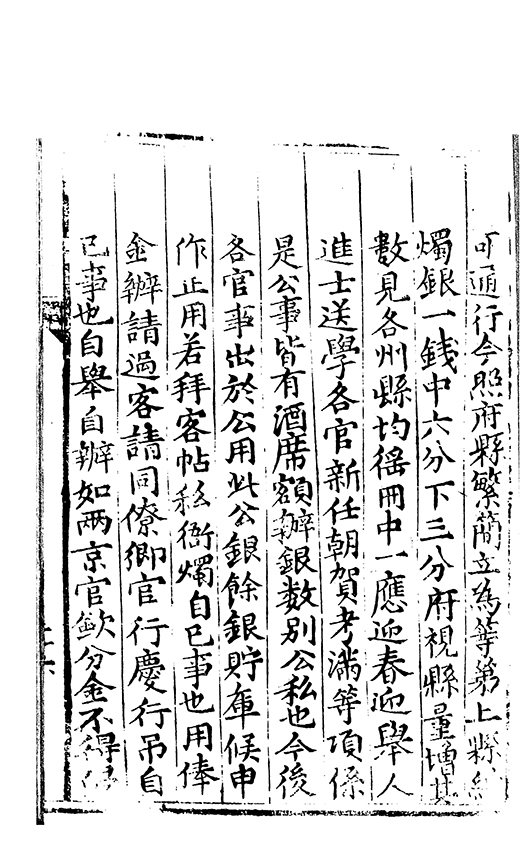 可通行今照府縣繁簡立為等第上縣紙
燭銀一錢中六分下三分府視縣量增其
數見各州縣均徭冊中一應迎春迎舉人
進士送學各官新任朝賀考滿等項係
是公事皆有酒席額辦銀數別公私也今後
各官事出於公用此公銀餘銀貯庫候申
作正用若拜客帖私衙燭自己事也用俸
金辦請過客請同僚鄉官行慶行吊自
己事也自舉自辦如兩京官斂分金不得